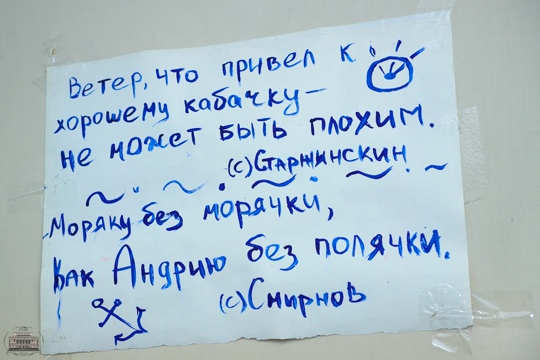 Ветер, что привел к
хорошему кабачку —
не может быть плохим.
(с) Старжинскин
Моряку без морячки,
Как Андрию без полячки.
(с) Смирнов